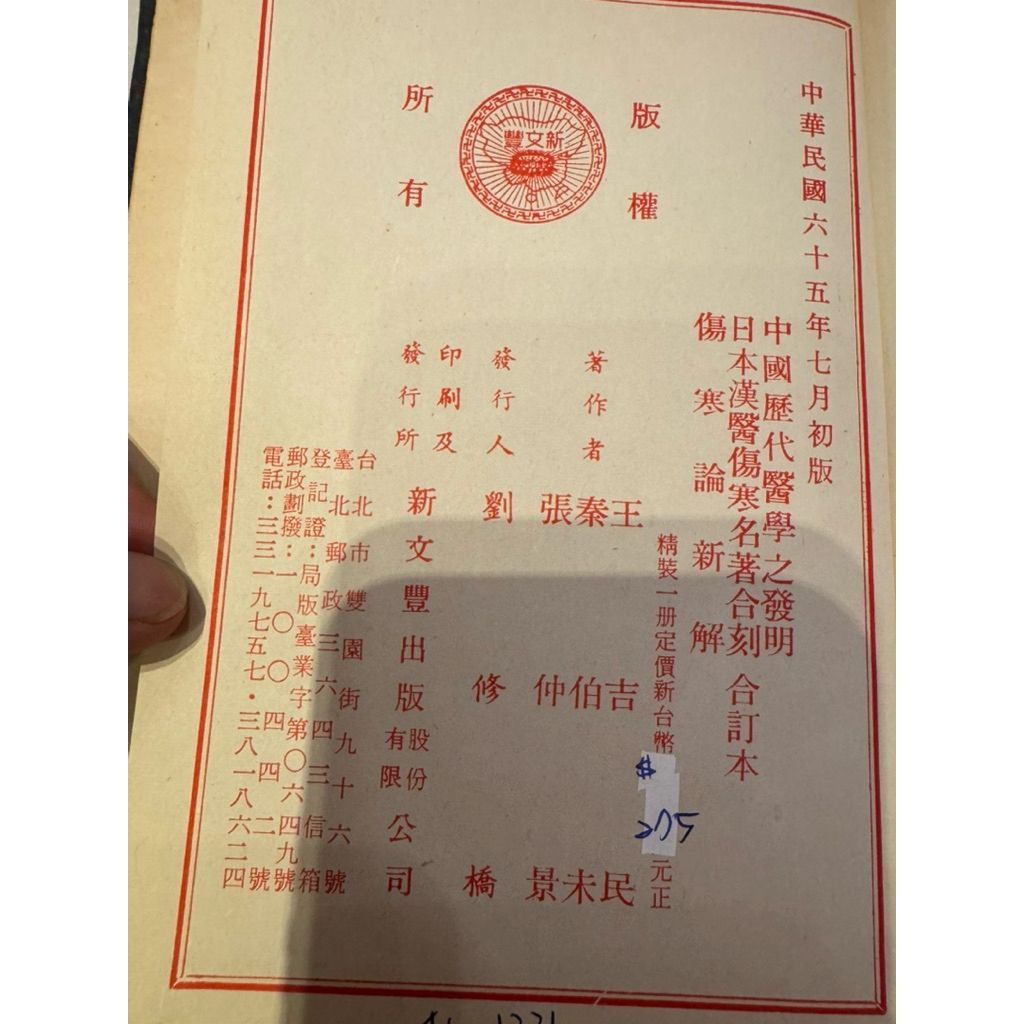 中華民國六十五年七月初版
中國歷代醫學之發明
日本漢醫傷寒名著合刻 合訂本
傷寒論新解
精裝一册定價新台幣$205元正
版權所有
新文豐
著作者 王吉民
秦伯未
張仲景
發行人 劉修橋
印刷及發行所 新文豐出版股份有限公司
台北市雙園街九十六號
臺北郵政三六四三信箱
登記證：局版臺業字第〇六四九號
郵政劃撥：一〇〇四四二號
電話：三三一九七五七・三八一八六二四